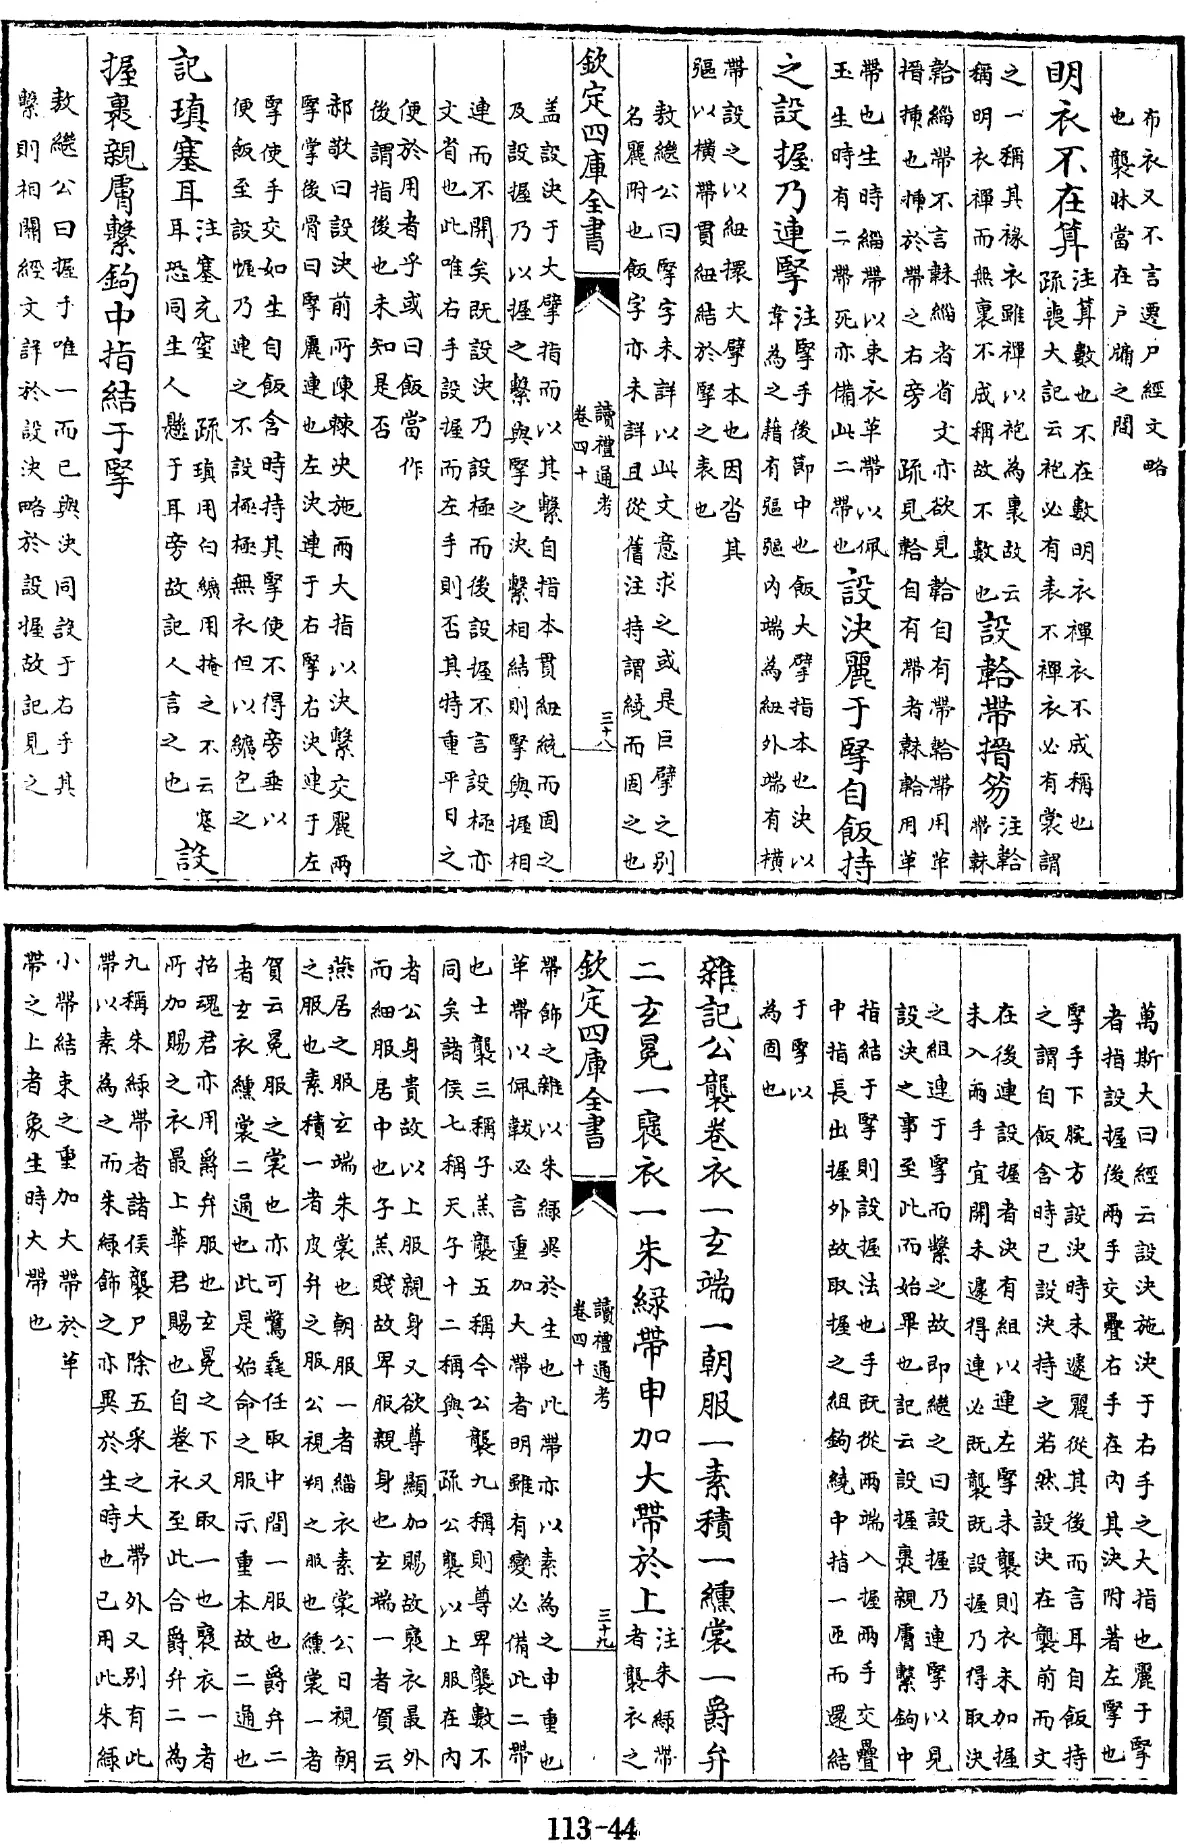 布衣又不言遷尸經文略
也襲牀當在戶牖之間
明衣不在算注算數也不在數明衣禪衣不成稱也
疏喪大記云袍必有表不禪衣必有裳謂
之一稱其褖衣雖禪以袍為裏故云
稱明衣禪而無裏不成稱故不數也設韐帶搢笏注韐
帶韎
韐緇帶不言韎緇者省文亦欲見韐自有帶韐帶用革
搢揷也揷於帶之右旁 疏見韐自有帶者韎韐用革
帶也生時緇帶以束衣革帶以佩
玉生時有二帶死亦備此二帶也設決麗于掔自飯持
之設握乃連掔注掔手後節中也飯大擘指本也決以
韋為之藉有彄彄內端為紐外端有橫
帶設之以紐擐大擘本也因沓其
彄以橫帶貫紐結於掔之表也
敖繼公曰掔字未詳以此文意求之或是巨擘之別
名麗附也飯字亦未詳且從舊注持謂繞而固之也
欽定四庫全書 讀禮通考 卷四十 三十八
蓋設決于大擘指而以其繫自指本貫紐繞而固之
及設握乃以握之繫與掔之決繫相結則掔與握相
連而不開矣既設決乃設極而後設握不言設極亦
文省也此唯右手設握而左手則否其特重平日之
便於用者乎或曰飯當作
後謂指後也未知是否
郝敬曰設決前所陳棘決施兩大指以決繫交麗兩
掔掌後骨曰掔麗連也左決連于右掔右決連于左
掔使手交如生自飯含時持其掔使不得旁垂以
便飯至設幄乃連之不設極極無衣但以纊包之
記瑱塞耳注塞充窒 疏瑱用白纊用掩之不云塞
耳恐同生人懸于耳旁故記人言之也設
握裏親膚繫鉤中指結于掔
敖繼公曰握手唯一而已與決同設于右手其
繫則相關經文詳於設決略於設握故記見之
萬斯大曰經云設決施決于右手之大指也麗于掔
者指設握後兩手交疊右手在內其決附著左掔也
掔手下腕方設決時未遽麗從其後而言耳自飯持
之謂自飯含時已設決持之若然設決在襲前而文
在後連設握者決有組以連左掔未襲則衣未加握
未入兩手宜開未遽得連必既襲既設握乃得取決
之組連于掔而繫之故即繼之曰設握乃連掔以見
設決之事至此而始畢也記云設握裹親膚繫鉤中
指結于掔則設握法也手既從兩端入握兩手交疊
中指長出握外故取握之組鉤繞中指一匝而還結
于掔以
為固也
雜記公襲卷衣一玄端一朝服一素積一纁裳一爵弁
二玄冕一襃衣一朱綠帶申加大帶於上注朱綠帶
者襲衣之
欽定四庫全書 讀禮通考 卷四十 三十九
帶飾之雜以朱綠異於生也此帶亦以素為之申重也
革帶以佩韍必言重加大帶者明雖有變必備此二帶
也士襲三稱子羔襲五稱今公襲九稱則尊卑襲數不
同矣諸侯七稱天子十二稱與 疏公襲以上服在內
者公身貴故以上服親身又欲尊顯加賜故襃衣最外
而細服居中也子羔賤故卑服親身也玄端一者賀云
燕居之服玄端朱裳也朝服一者緇衣素裳公日視朝
之服也素積一者皮弁之服公視朔之服也纁裳一者
賀云冕服之裳也亦可鷩毳任取中間一服也爵弁二
者玄衣纁裳二通也此是始命之服示重本故二通也
招魂君亦用爵弁服也玄冕之下又取一也襃衣一者
所加賜之衣最上華君賜也自卷衣至此合爵弁二為
九稱朱綠帶者諸侯襲尸除五采之大帶外又別有此
帶以素為之而朱綠飾之亦異於生時也已用此朱綠
小帶結束之重加大帶於革
帶之上者象生時大帶也
113-44